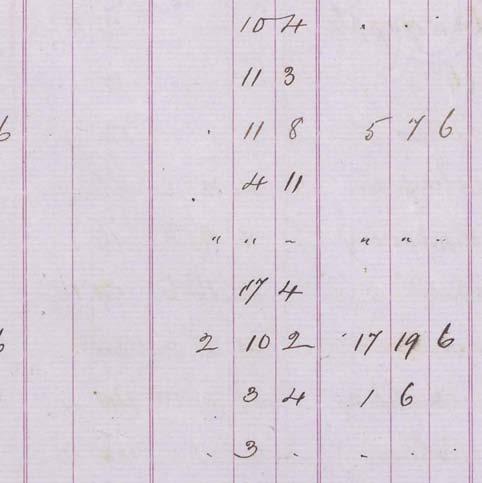 10 4 . . .
11 3
6 . 11 8 5 7 6
. 4 11
" " " " " "
17 4
6 2 10 2 17 19 6
3 4 1 6
. 3 . . . .